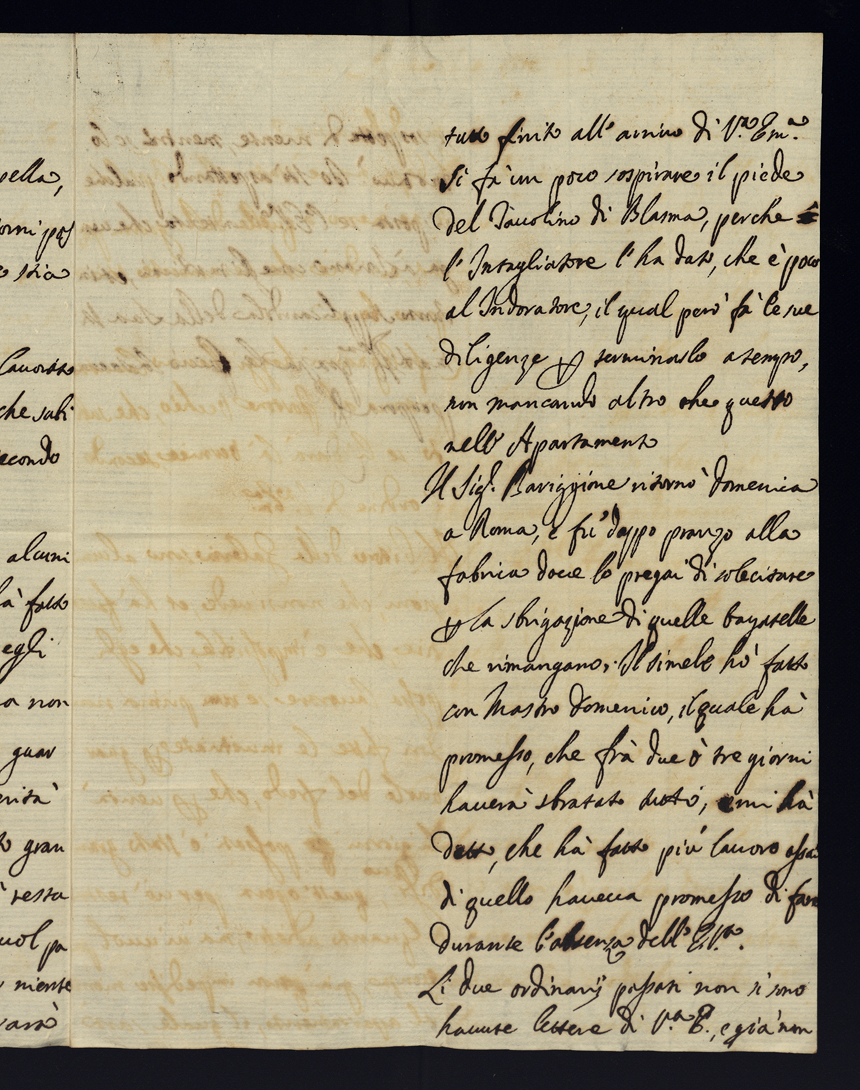 pella,
orni pas
e stia
Lavorato
che subi
econdo
alcuni
hà fatto
egli
a non
guar
erità
to gran
resta
uol pa
niente
varà
tutto finito all' arrivo di V.ra Em.a
Si fà un poco sospirare il piede
del Tavolino di Blasma, perche
l' Intagliatore l' ha dato, che è poco
al Indoratore, il qual però fà le sue
diligenze terminarlo a tempo,
non mancando altro che questo
nell' Apartamento
Il Sig.r Bariggione ritornò domenica
a Roma, e fù doppo pranzo alla
fabrica dove lo pregai di solecitare
la sbrigazione di quelle bagatelle
che rimangano, Il simile hò fatto
con Mastro Domenico, il quale hà
promesso, che frà due ò tre giorni
haverà sbratato tutto, e mi hà
detto, che hà fatto più lavoro assai
di quello haveva promesso di fare
durante l'absenza dell' E.V.ra.
Li due ordinarij passati non si sono
havute lettere di V.ra E., e già non